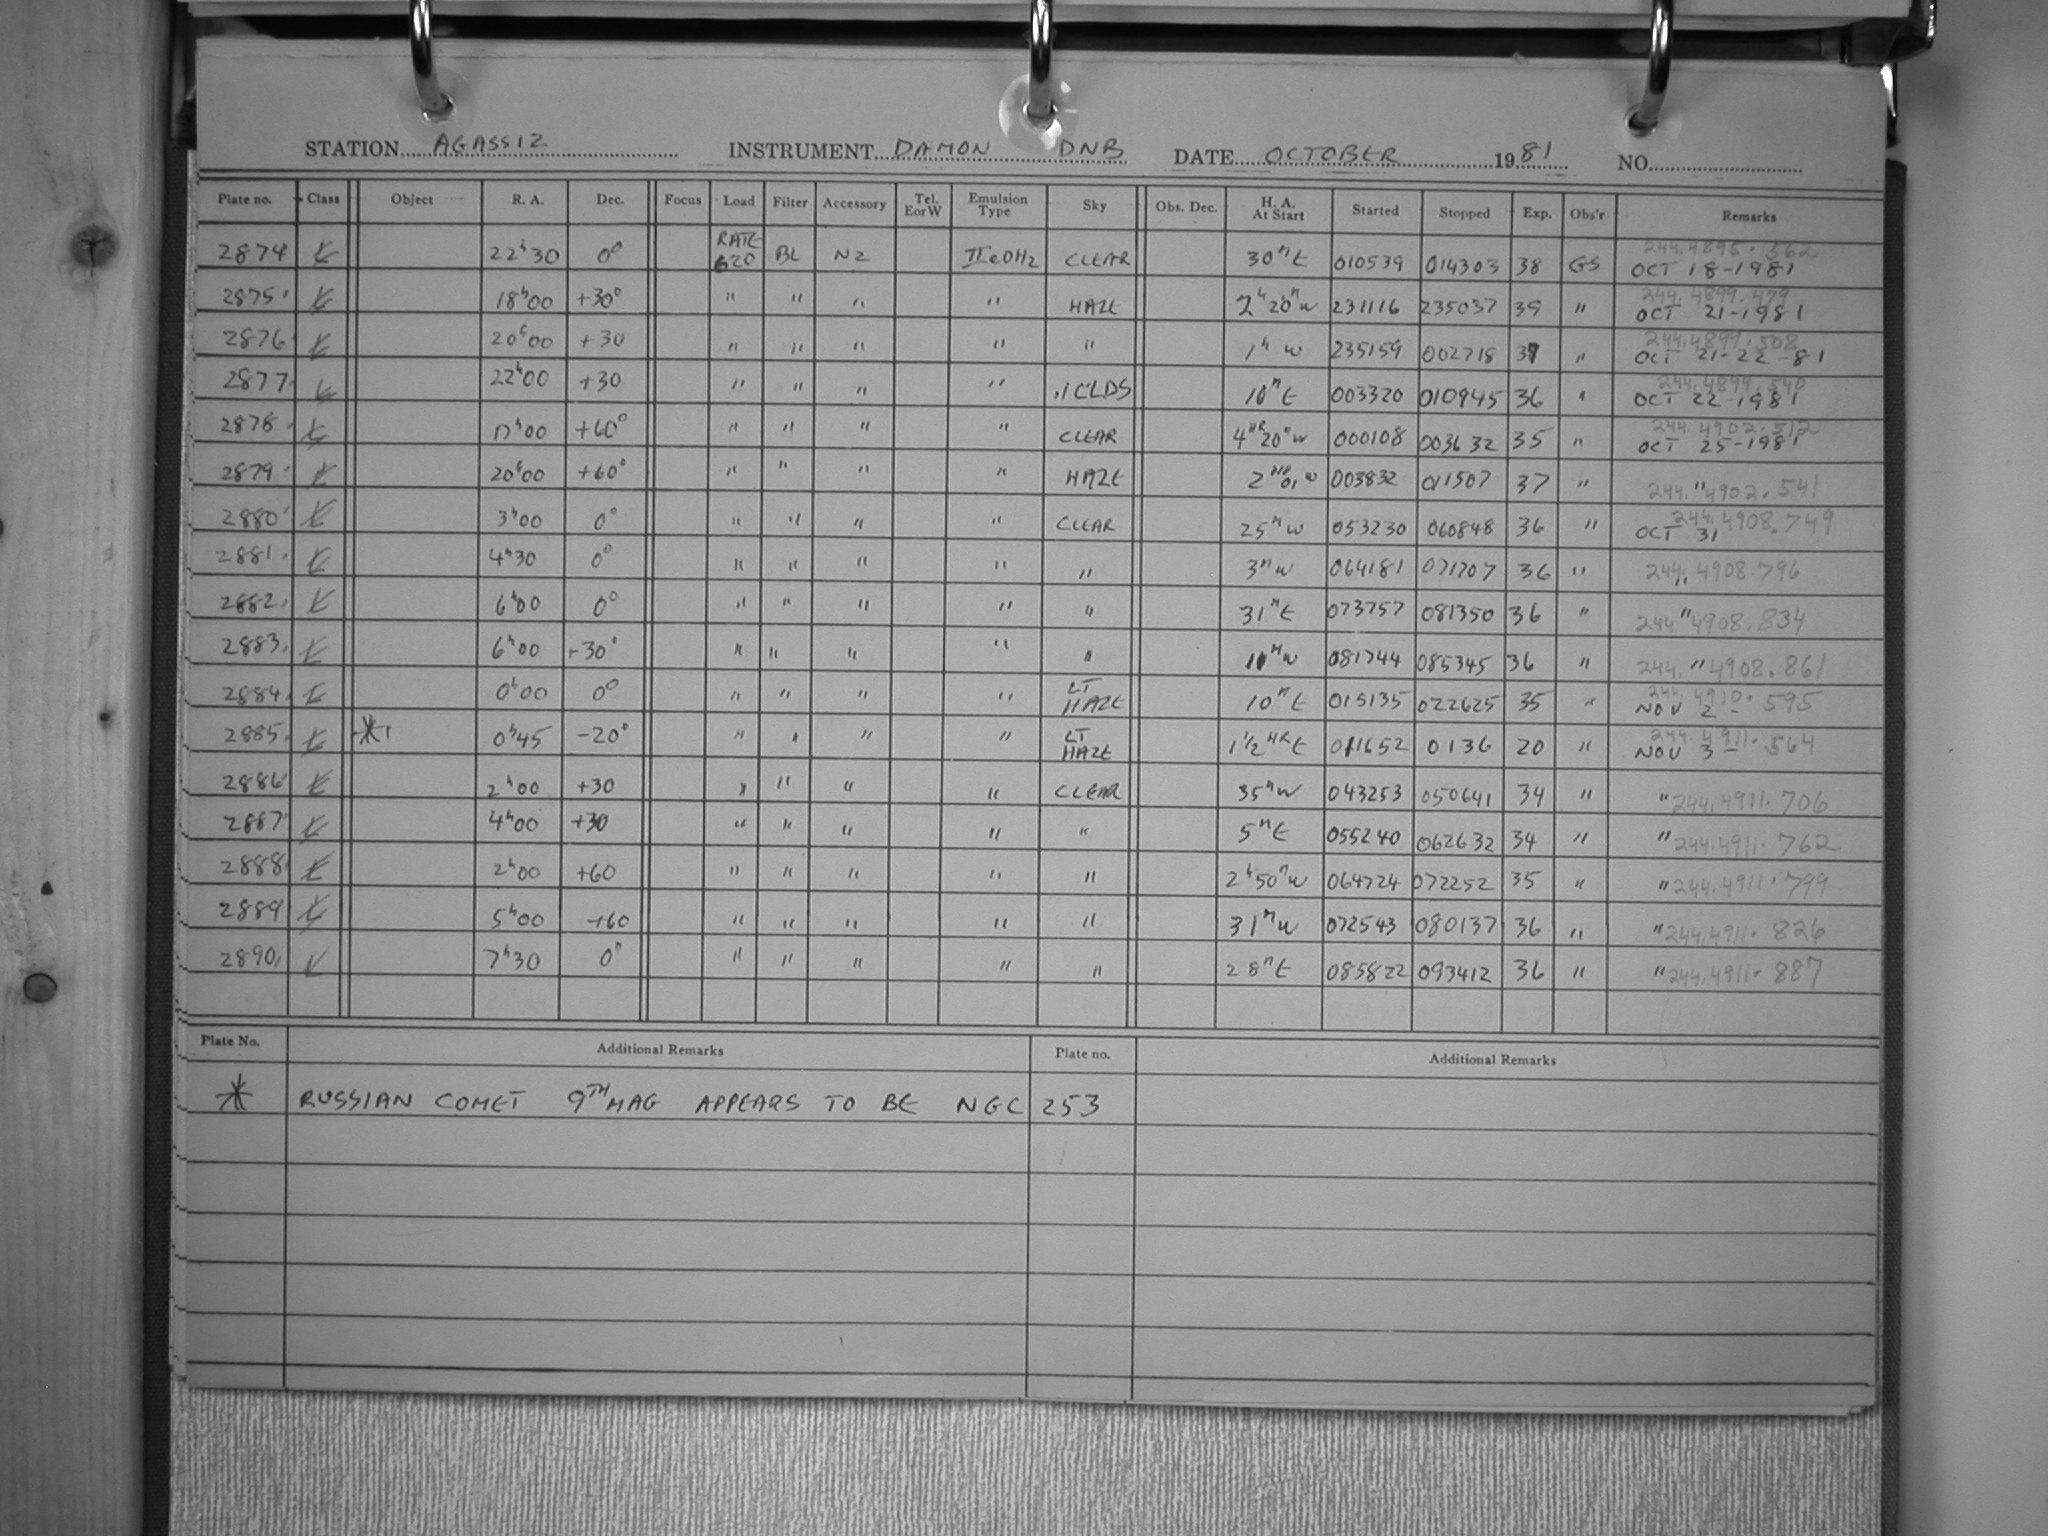 STATION AGASSIZ INSTRUMENT DAMON DNB DATE OCTOBER 1981 NO.
Plate no. Class Object R. A. Dec. Focus Load Filter Accessory Tel. E or W Emulsion Type Sky Obs. Dec. H. A. At Start Started Stopped Exp. Obs'r Remarks
2874 22h30 0° RATE 620 BL N2 CLEAR 30m E 010539 014303 38 GS 244.4895.562 OCT 18-1981
2875 18h00 +30° " " " " HAZE 2h20m W 231116 235037 39 " 244.4899.479 OCT 21-1981
2876 20h00 +30 " " " " " 1h W 235159 002718 " 244.4899.508 OCT 21-22-81
2877 22h00 +30 " " " " .1 CLDS 10m E 003320 010945 36 " 244.4899.540 OCT 22-1981
2878 17h00 +60° " " " " CLEAR 4HR20m W 000108 003632 35 " 244.4902.512 OCT 25-1981
2879 20h00 +60° " " " " HAZE 2HR01 W 003832 011507 37 " " 244.4902.541
2880 3h00 0° " " " " CLEAR 25m W 053230 060848 36 " 244.4908.749 OCT 31
2881 4h30 0° " " " " " 3m W 064181 071707 36 " " 244.4908.796
2882 6h00 0° " " " " " 31m E 073757 081350 36 " " 244.4908.834
2883 6h00 +30° " " " " " 11m W 081744 085345 36 " " 244.4908.861
2884 0h00 0° " " " " LT HAZE 10m E 015135 022625 35 " 244.4910.595 NOV 2-
2885 *1 0h45 -20° " " " " LT HAZE 1 1/2 HR E 011652 0136 20 " 244.4911.564 NOV 3-
2886 2h00 +30 " " " " CLEAR 35m W 043253 050641 34 " " 244.4911.706
2887 4h00 +30 " " " " " 5m E 055240 062632 34 " " 244.4911.762
2888 2h00 +60 " " " " " 2h50m W 064724 072252 35 " " 244.4911.799
2889 5h00 +60 " " " " " 31m W 072543 080137 36 " " 244.4911.826
2890 7h30 0° " " " " " 28m E 085822 093412 36 " " 244.4911.887
Plate No. Additional Remarks Plate no. Additional Remarks
* RUSSIAN COMET 9TH MAG APPEARS TO BE NGC 253